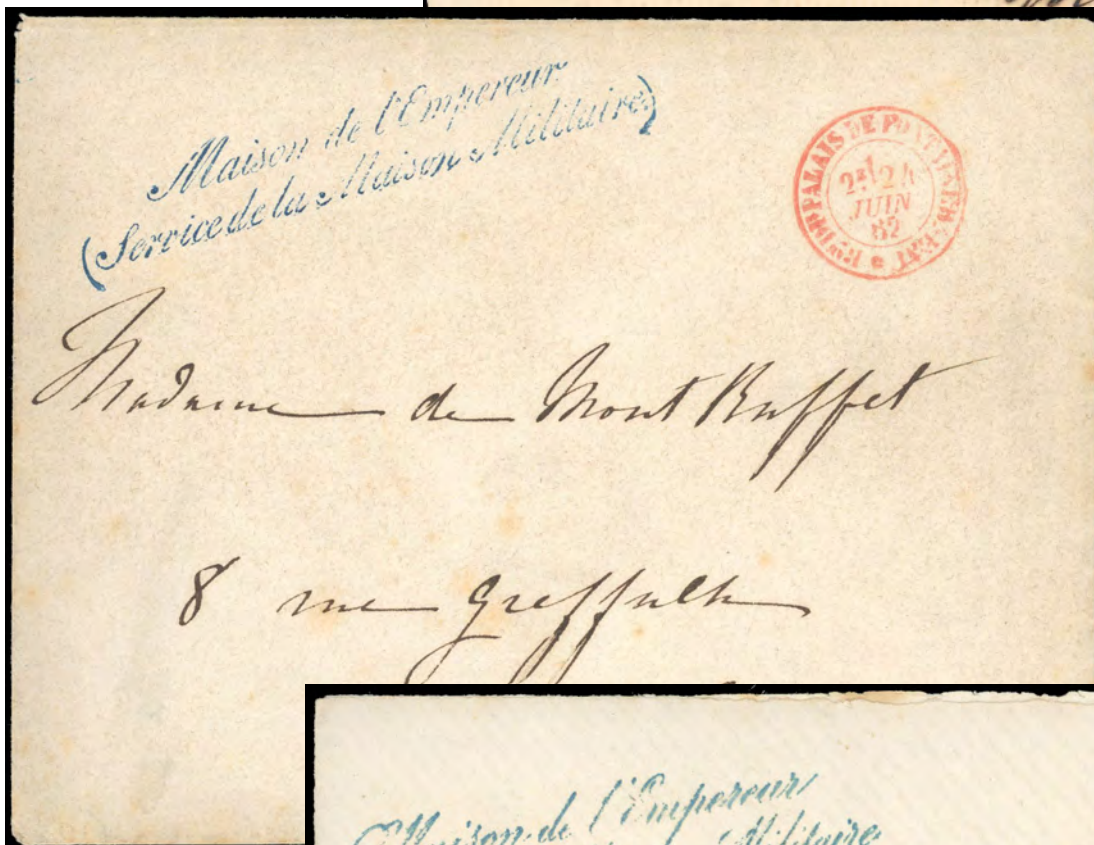 Maison de l'Empereur
(Service de la Maison Militaire)
PALAIS DE FONTAINEBLEAU
2ᴱ
24
JUIN
62
Madame de Mont Ruffet
8 rue Greffulhe
Maison de l'Empereur
Militaire